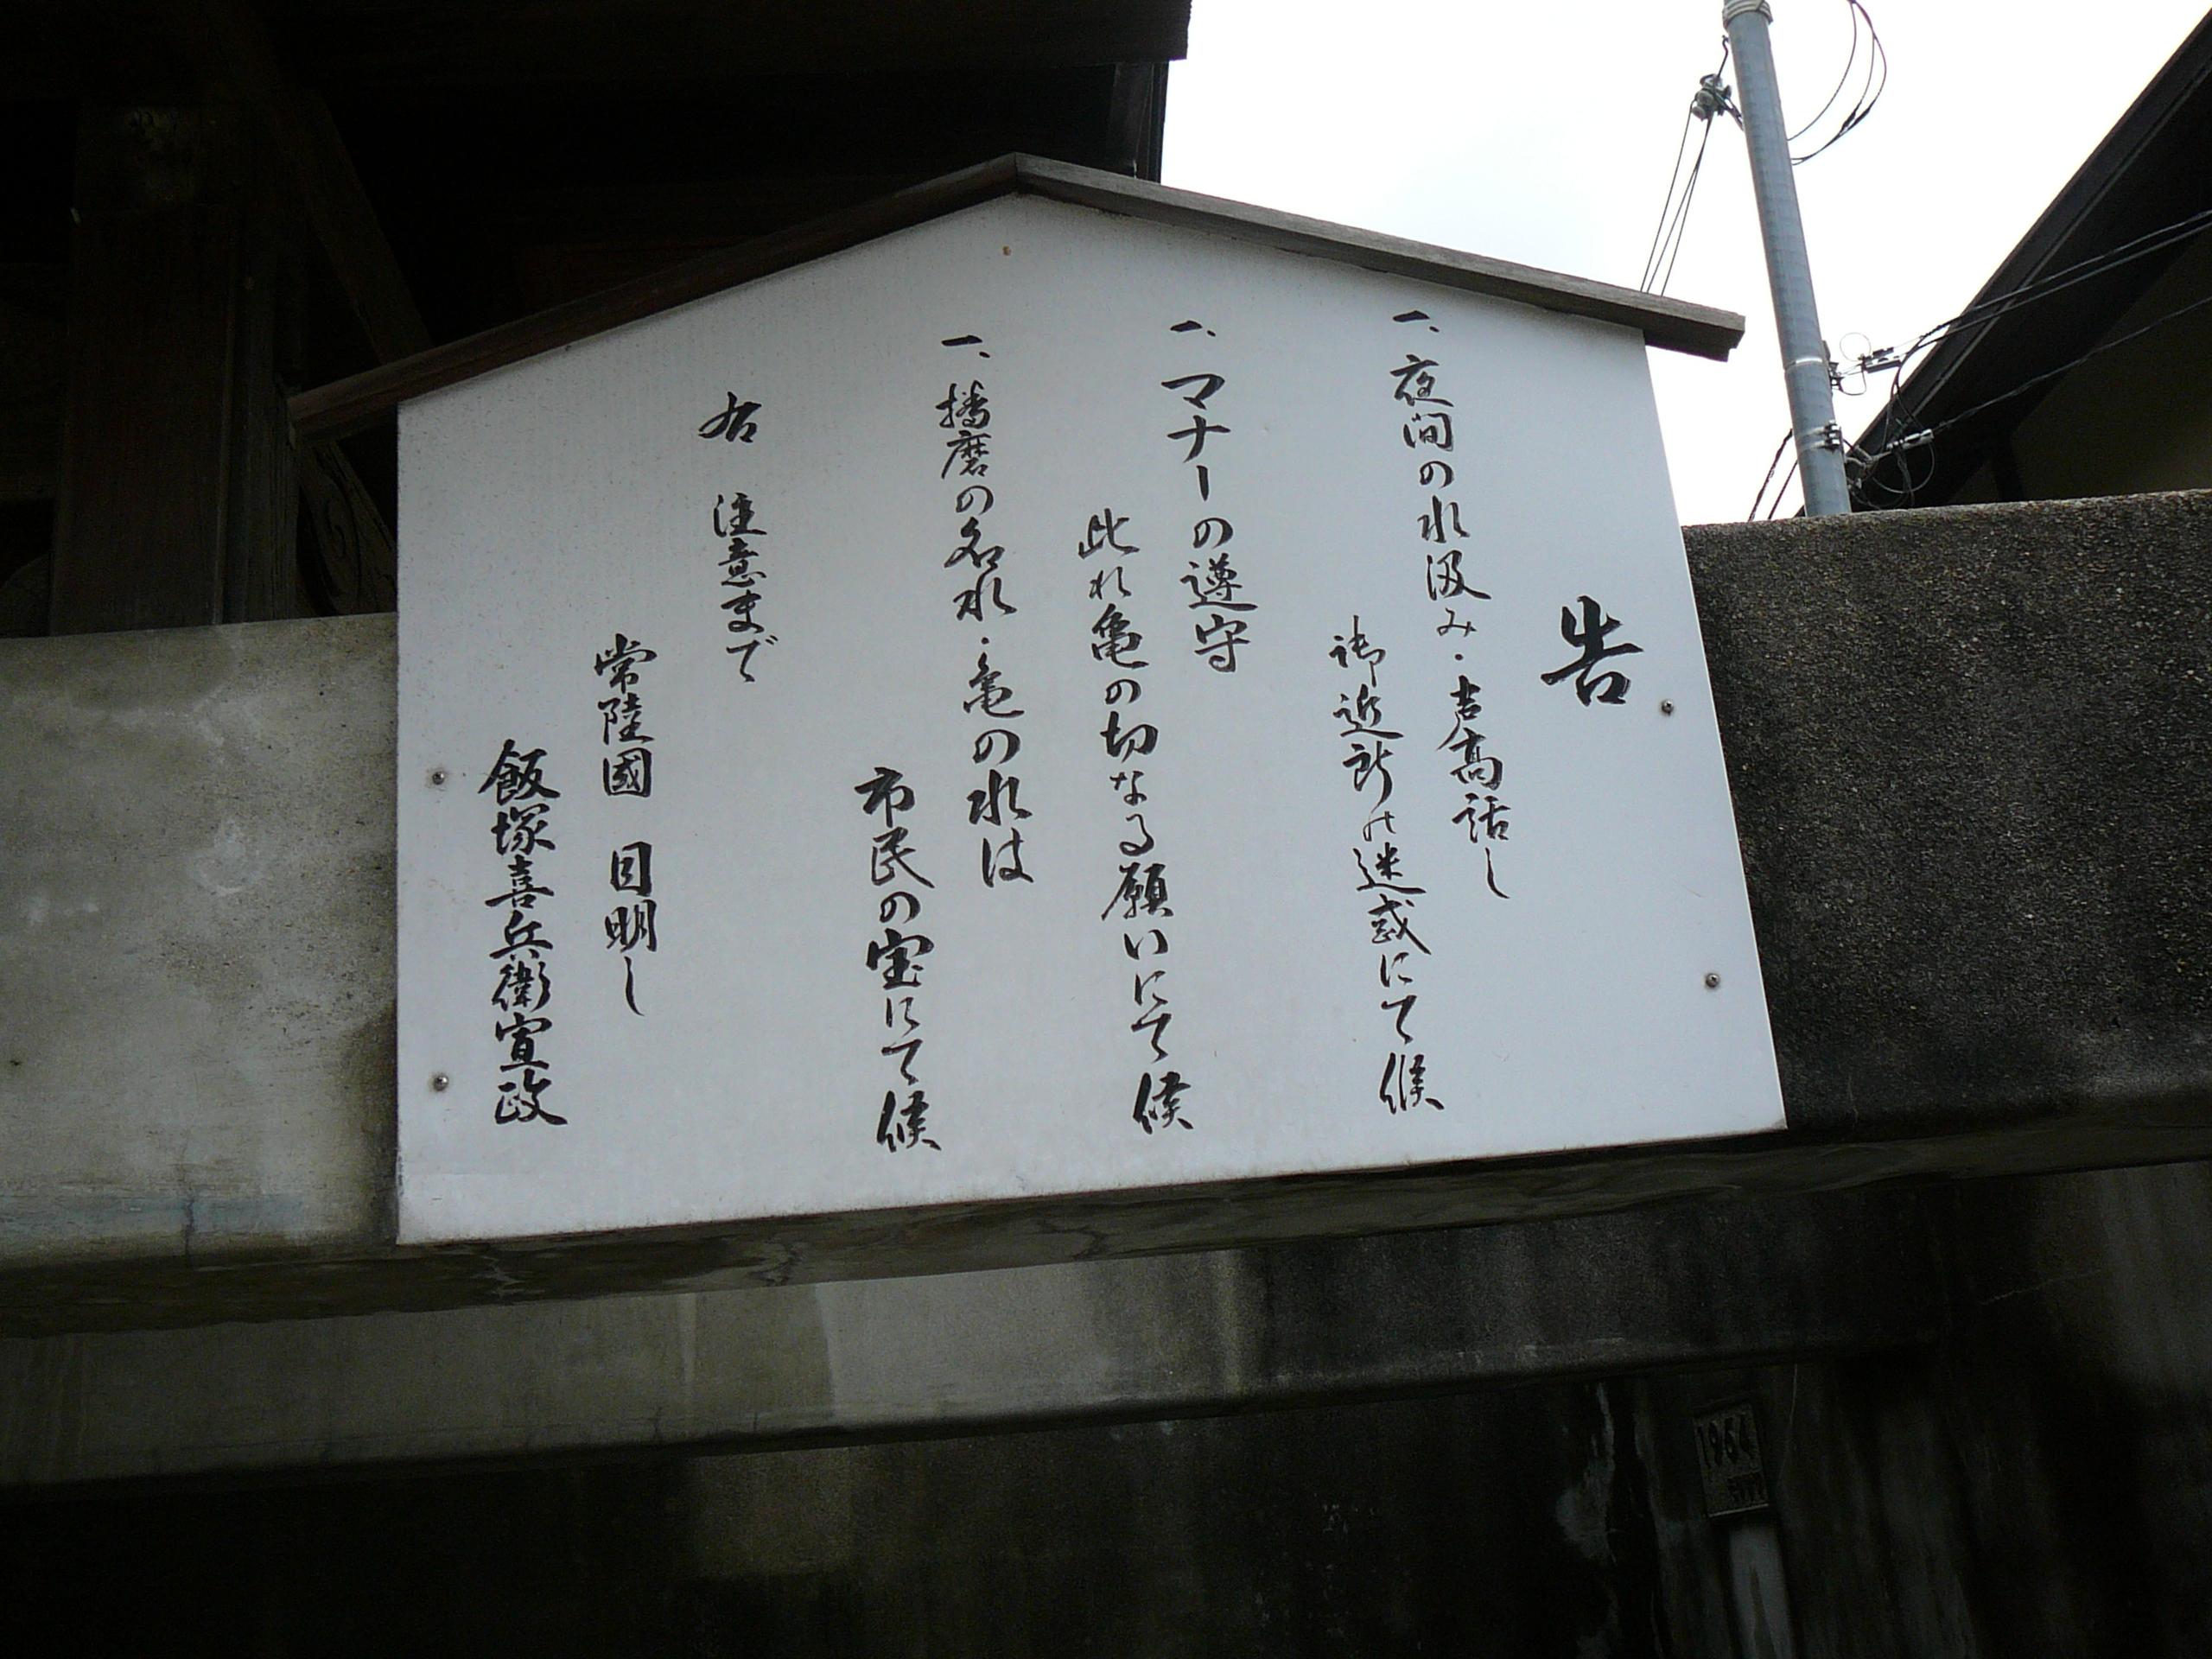 告
一、夜間の水汲み・声高話し
御近所の迷惑にて候
一、マナーの遵守
此れ亀の切なる願いにて候
一、播磨の名水・亀の水は
市民の宝にて候
右 注意まで
常陸國 目明し
飯塚喜兵衛宣政
1964